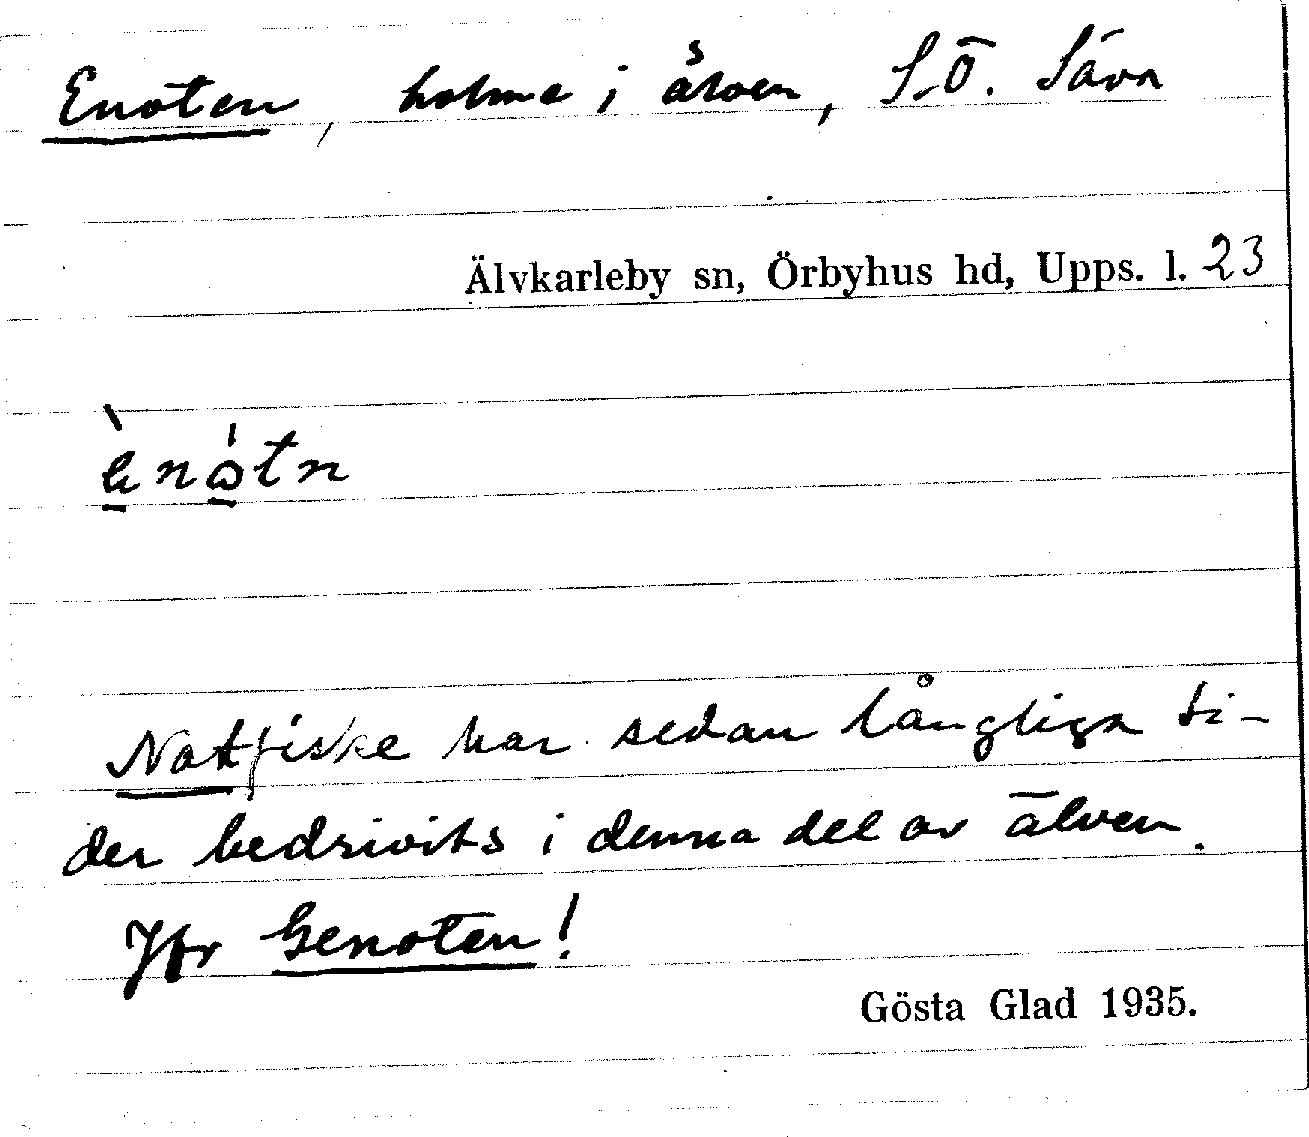 Enoten, holme i älven, S.Ö. Säva
Älvkarleby sn, Örbyhus hd, Upps. l. 23
ènótn
Notfiske har sedan långliga ti-
der bedrivits i denna del av älven.
Jfr Genoten!
Gösta Glad 1935.